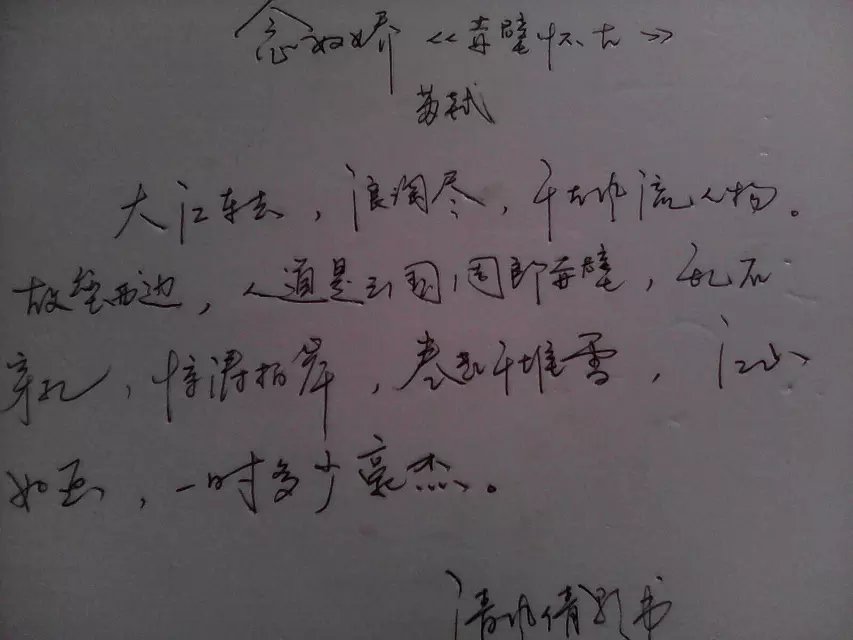 念奴娇《赤壁怀古》
苏轼
大江东去，浪淘尽，千古风流人物。
故垒西边，人道是三国周郎赤壁，乱石
穿孔，惊涛拍岸，卷起千堆雪，江山
如画，一时多少豪杰。
清风倩影书